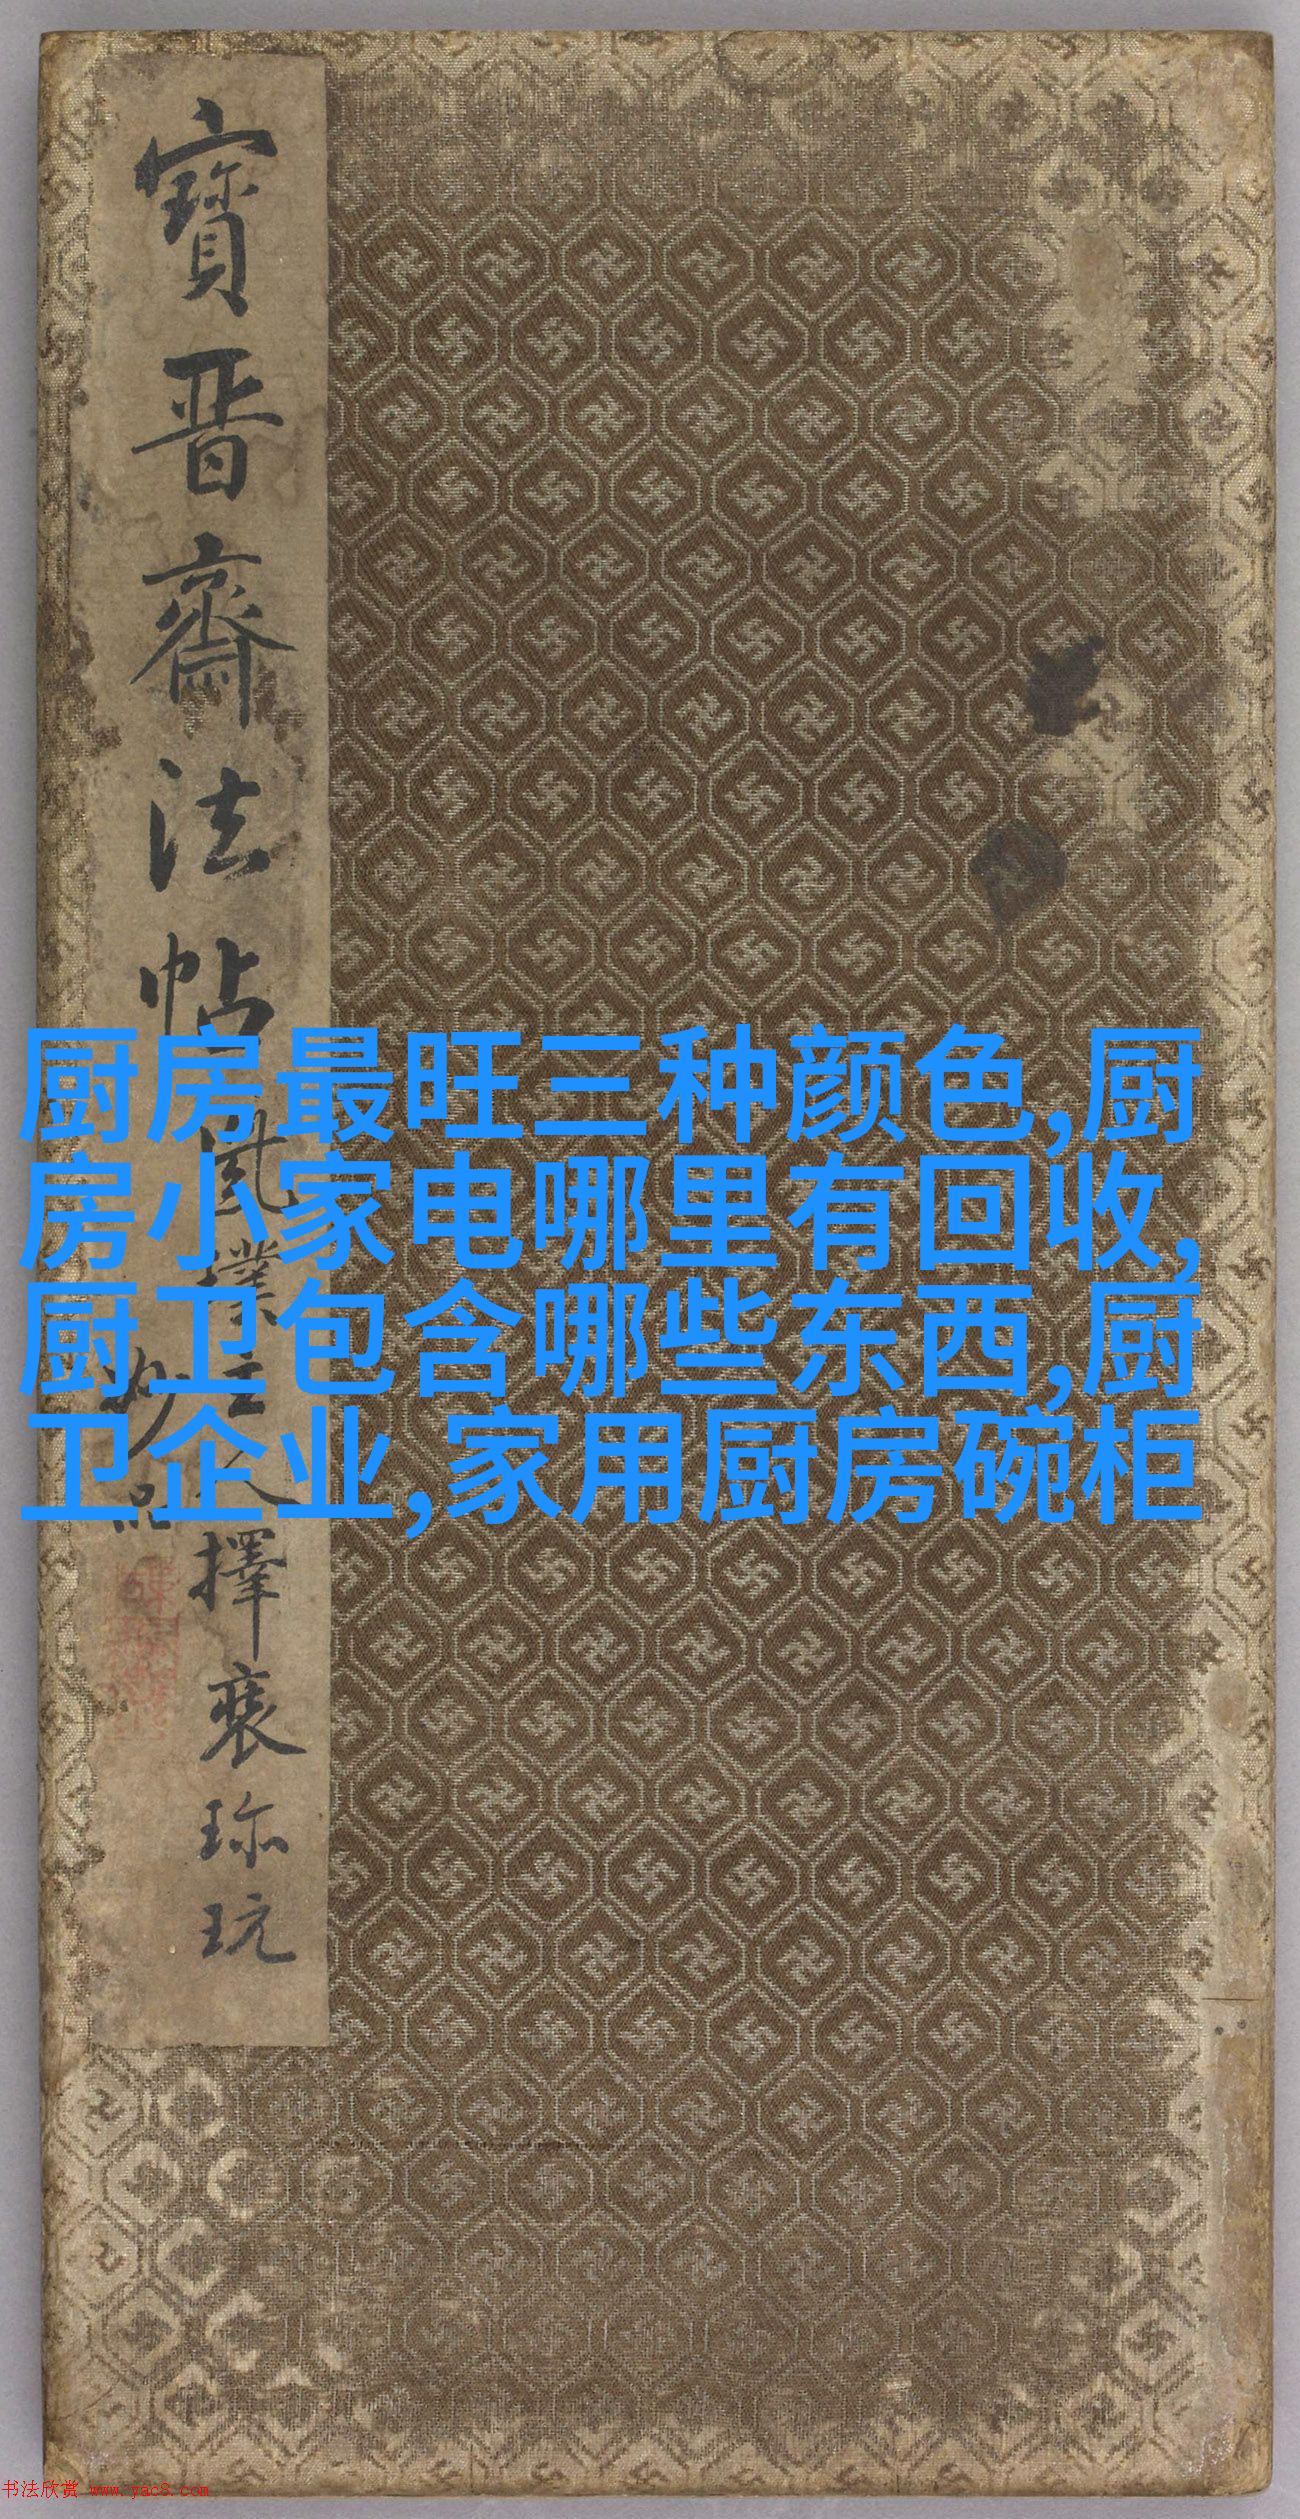 寶晋齋法帖
風撲工人擇裘珎玩
妙品
厨房最旺三种颜色,厨
房小家电哪里有回收,
厨卫包含哪些东西,厨
卫企业,家用厨房碗柜
书法欣赏 www.yac8.com